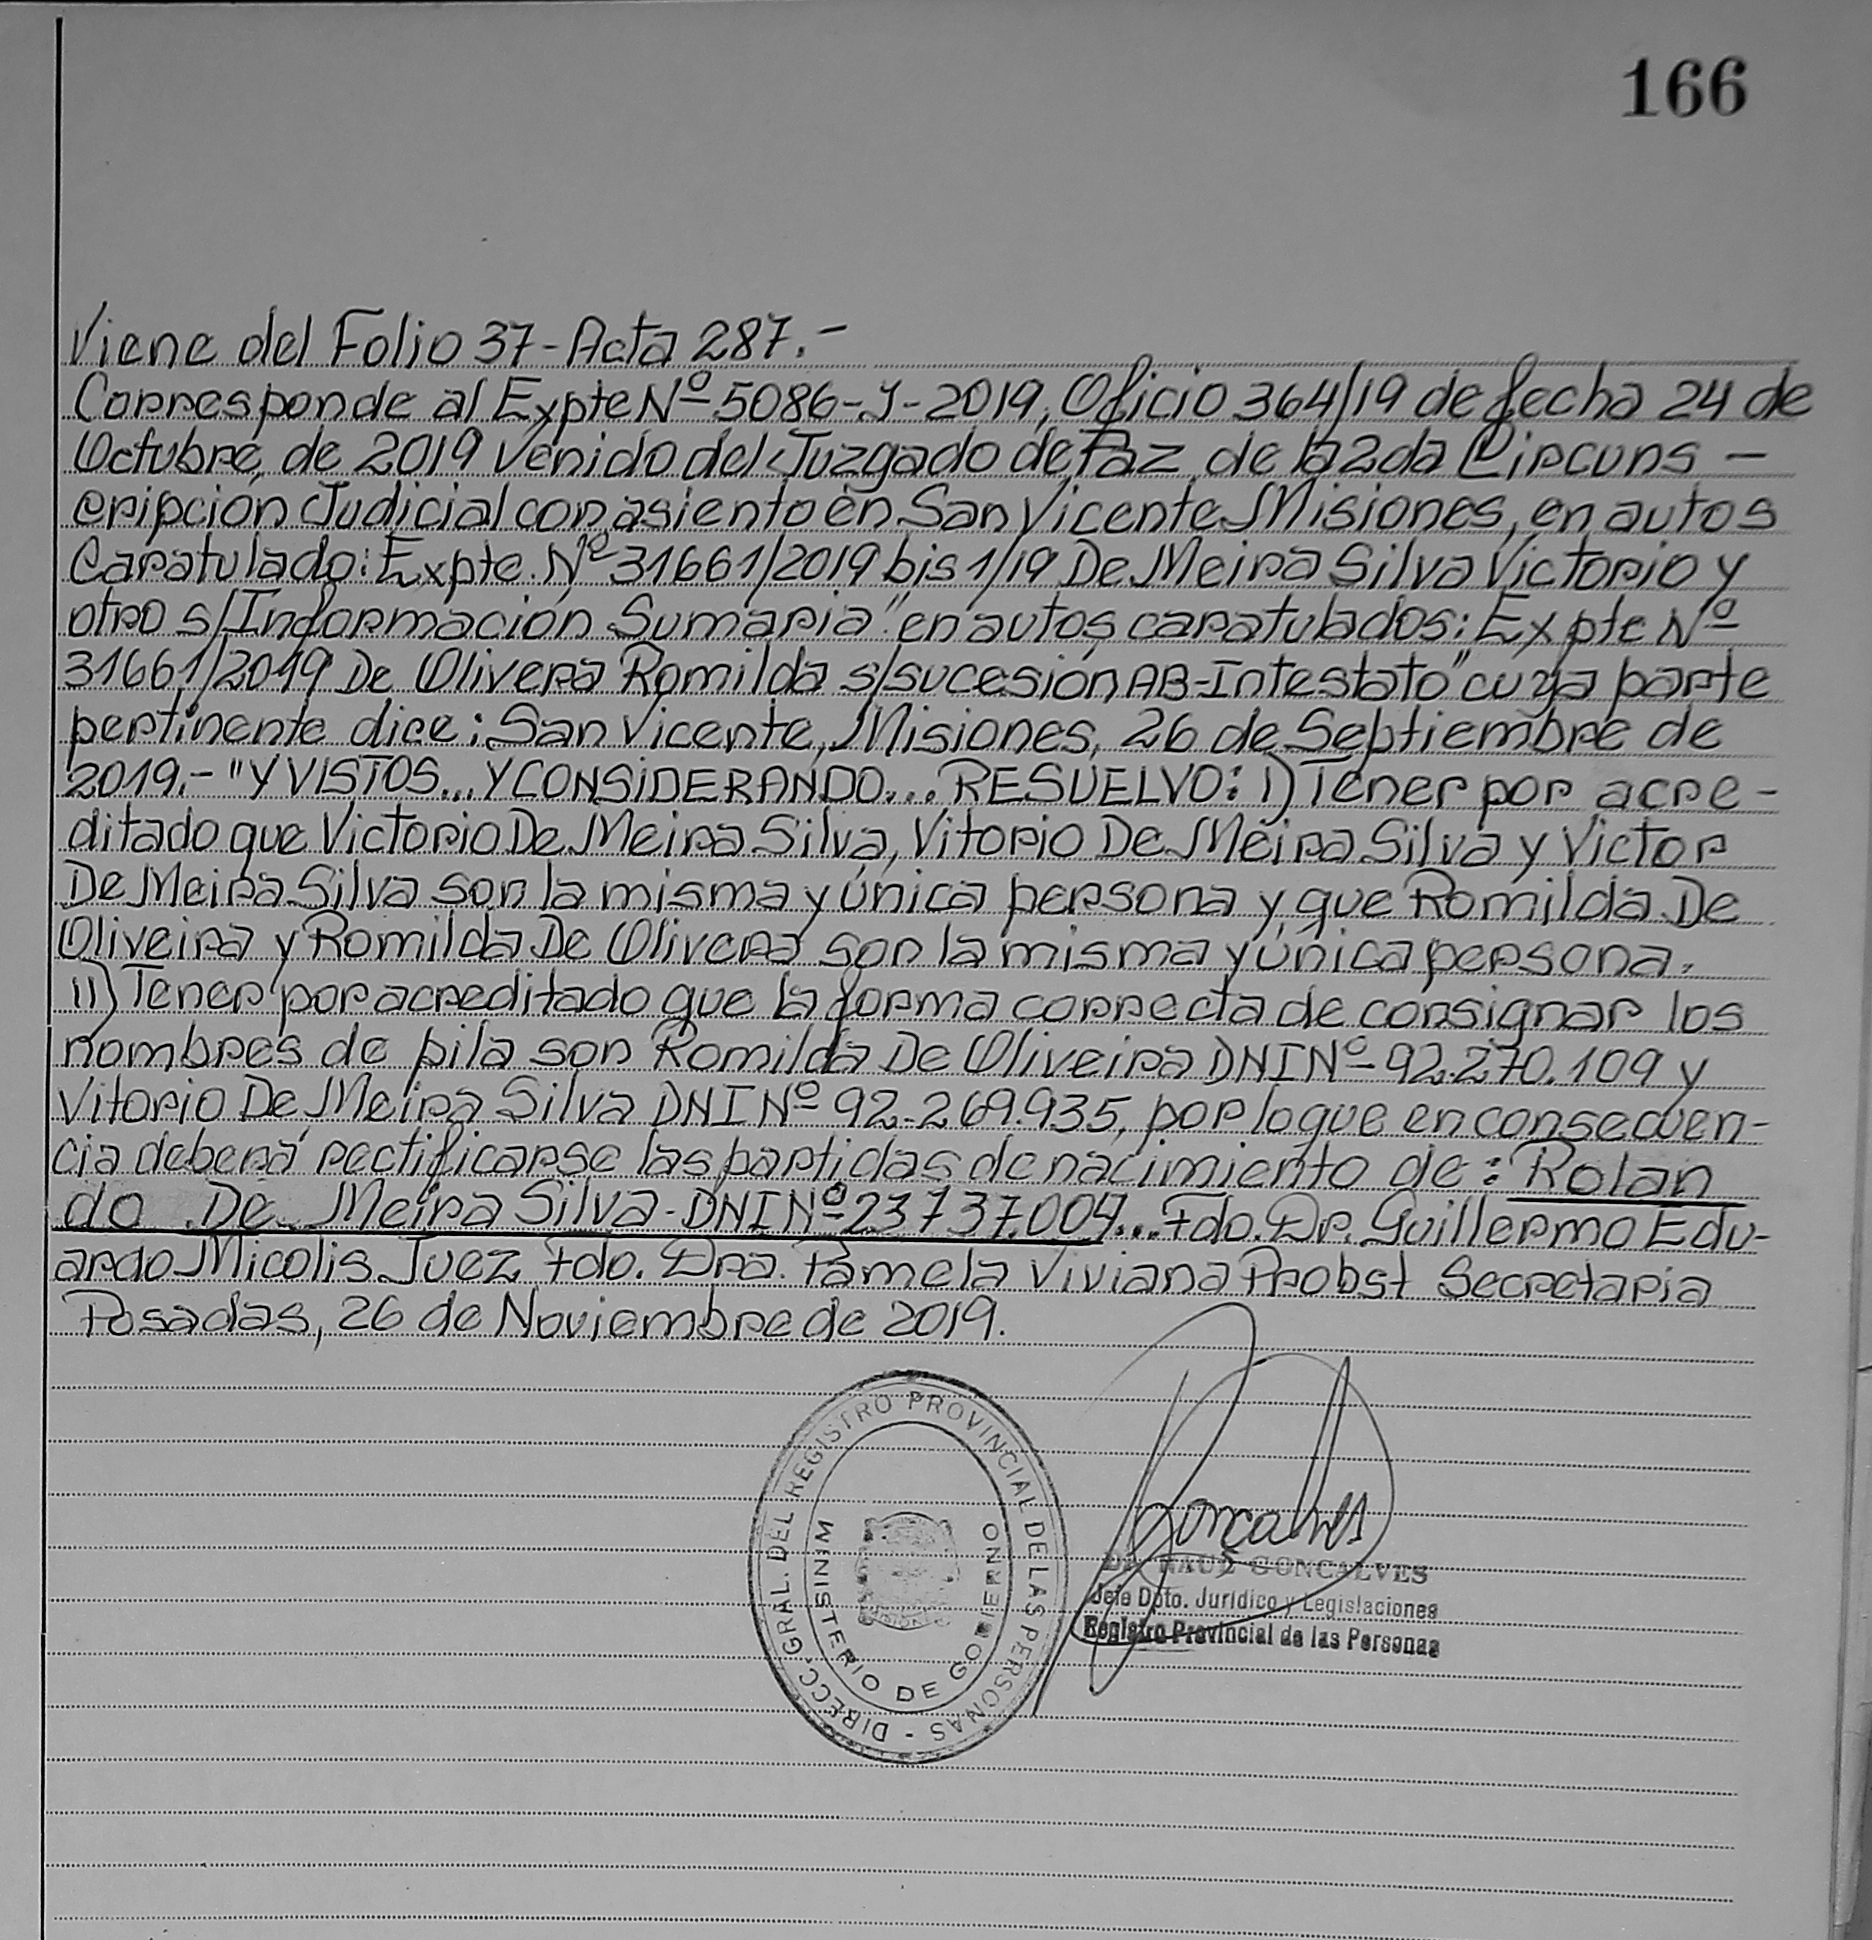 166
Viene del Folio 37-Acta 287.-
Corresponde al Expte Nº 5086-J-2019, Oficio 364/19 de fecha 24 de
Octubre, de 2019 venido del Juzgado de Paz de la 2da Circuns-
cripción Judicial con asiento en San Vicente Misiones, en autos
Caratulado: Expte. Nº 31661/2019 bis 1/19 De Meira Silva Victorio y
otro s/Informacion Sumaria" en autos caratulados: Expte Nº
31661/2019 De Olivera Romilda s/sucesión AB-Intestato" cuya parte
pertinente dice: San Vicente, Misiones, 26 de Septiembre de
2019.- "Y VISTOS... Y CONSIDERANDO... RESUELVO: I) Tener por acre-
ditado que Victorio De Meira Silva, Vitorio De Meira Silva y Victor
De Meira Silva son la misma y única persona y que Romilda De
Oliveira y Romilda De Olivera son la misma y única persona.
II) Tener por acreditado que la forma correcta de consignar los
nombres de pila son Romilda De Oliveira DNI Nº-92.270.109 y
Vitorio De Meira Silva DNI Nº 92.269.935, por lo que en consecuen-
cia deberá rectificarse las partidas de nacimiento de: Rolan
do De Meira Silva-DNI Nº 23737.004... Fdo. Dr. Guillermo Edu-
ardo Micolis Juez Fdo. Dra. Pamela Viviana Probst Secretaria
Posadas, 26 de Noviembre de 2019.
DIRECC. GRAL. DEL REGISTRO PROVINCIAL DE LAS PERSONAS -
MINISTERIO DE GOBIERNO
Goncalves
GONCALVES
Jefe Dpto. Jurídico y Legislaciones
Registro Provincial de las Personas